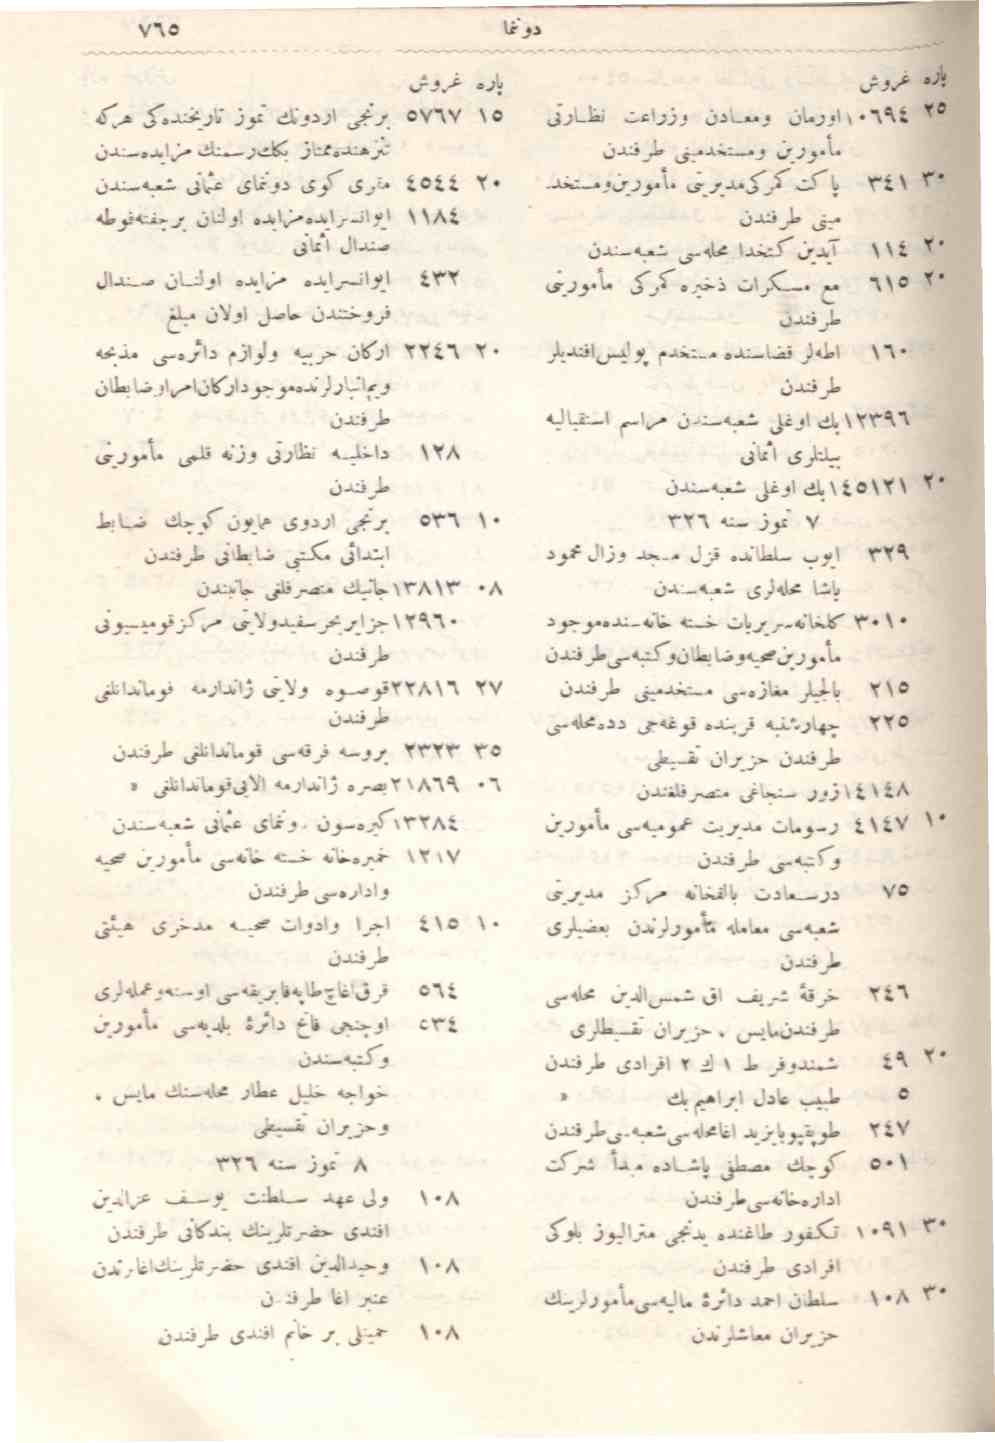 دونما ٧٦٥
پاره غروش
٢٥ ١٠٦٩٤ اورمان ومعادن وزراعت نظارتی
مأمورین ومستخدمینی طرفندن
٣٠ ٣٤١ پاکت کمرکی مدیریتی مأمورین ومستخد
مینی طرفندن
٢٠ ١١٤ آیدین کتخدا محله‌سی شعبه‌سندن
٢٠ ٦١٥ مع مسکرات ذخیره کمرکی مأمورینی
طرفندن
١٦٠ اطه‌لر قضاسنده مستخدم پولیس افندیلر
طرفندن
١٢٣٩٦ بك اوغلی شعبه‌سندن مراسم استقبالیه
بیلتلری اثمانی
٢٠ ١٤٥١٢١ بك اوغلی شعبه‌سندن
٧ تموز سنه ٣٢٦
٣٢٩ ایوب سلطانده قزل مسجد وزال محمود
پاشا محله‌لری شعبه‌سندن
٣٠١٠ کلخانه سریریات خسته خانه‌سنده موجود
مأمورین صحیه وضابطان وکتبه‌سی طرفندن
٢١٥ بالجیلر مغازه‌سی مستخدمینی طرفندن
٢٢٥ چهارشنبه قربنده قوغه‌جی دده محله‌سی
طرفندن حزیران تقسیطی
١٤١٤٨ زور سنجاغی متصرفلغندن
١٠ ٤١٤٧ رسومات مدیریت عمومیه‌سی مأمورین
وکتبه‌سی طرفندن
٧٥ درسعادت بالقخانه مرکز مدیریتی
شعبه‌سی معامله مأمورلرندن بعضیلری
طرفندن
٢٤٦ خرقهٔ شریف اق شمس‌الدین محله‌سی
طرفندن مایس ، حزیران تقسیطلری
٢٠ ٤٩ شمندوفر ط ١ ك ٢ افرادی طرفندن
٥ طبیب عادل ابراهیم بك »
٢٤٧ طوپقپو بایزید اغا محله‌سی شعبه‌سی طرفندن
٥٠١ کوچك مصطفی پاشاده مبدأ شرکت
اداره‌خانه‌سی طرفندن
٣٠ ١٠٩١ تکفور طاغنده یدنجی مترالیوز بلوکی
افرادی طرفندن
٣٠ ١٠٨ سلطان احمد دائرهٔ مالیه‌سی مأمورلرینك
حزیران معاشلرندن
پاره غروش
١٥ ٥٧٦٧ برنجی اردونك تموز تاریخنده‌کی هرکه
تنزهنده ممتاز بكك رسمنك مزایده‌سندن
٢٠ ٤٥٤٤ مقری کوی دونمای عثمانی شعبه‌سندن
١١٨٤ ایوانسرایده مزایده اولنان بر چفته فوطه
صندال اثمانی
٤٣٢ ایوانسرایده مزایده اولنان صندال
فروختندن حاصل اولان مبلغ
٢٠ ٢٢٤٦ ارکان حربیه ولوازم دائره‌سی مذبحه
ویم انبارلرنده موجود ارکان امرا وضابطان
طرفندن
١٢٨ داخلیه نظارتی وزنه قلمی مأمورینی
طرفندن
١٠ ٥٣٦ برنجی اردوی همایون کوچك ضابط
ابتدائی مکتبی ضابطانی طرفندن
٠٨ ١٣٨١٣ جانیك متصرفلغی جانبندن
١٢٩٦٠ جزایر بحر سفید ولایتی مرکز قومیسیونی
طرفندن
٢٧ ٢٢٨١٦ قوصوه ولایتی ژاندارمه قوماندانلغی
طرفندن
٣٥ ٢٣٢٣ بروسه فرقه‌سی قوماندانلغی طرفندن
٠٦ ٢١٨٦٩ بصره ژاندارمه الایی قوماندانلغی »
١٣٢٨٤ کیره‌سون دونمای عثمانی شعبه‌سندن
١٢١٧ خمیره‌خانه خسته خانه‌سی مأمورین صحیه
واداره‌سی طرفندن
١٠ ٤١٥ اجرا وادوات صحیه مدخری هیئتی
طرفندن
٥٦٤ قرق اغاج طاپه فابریقه‌سی اوسته وعمله‌لری
٥٣٤ اوچنجی فاتح دائرهٔ بلدیه‌سی مأمورین
وکتبه‌سندن
خواجه خلیل عطار محله‌سنك مایس ،
وحزیران تقسیطی
٨ تموز سنه ٣٢٦
١٠٨ ولی عهد سلطنت یوسف عزالدین
افندی حضرتلرینك بندکانی طرفندن
١٠٨ وحیدالدین افندی حضرتلرینك اغالرندن
عنبر اغا طرفندن
١٠٨ حمیتلی بر خانم افندی طرفندن